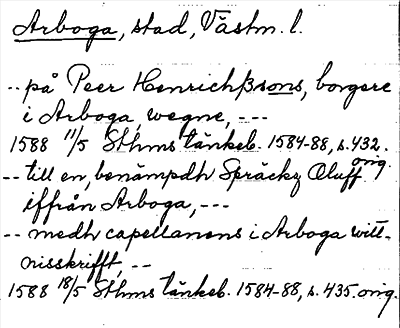 Arboga, stad, Västm. l.
-- på Peer Henrichßsons, borgere
i Arboga, wegne, ---
1588 11/5 Sthms tänkeb. 1584-88, s. 432.
orig.
-- till en, benämpdh Spräcky Oluff
iffrån Arboga, ---
-- medh capellanens i Arboga witt-
nisskrifft, --
1588 18/5 Sthms tänkeb. 1584-88, s. 435. orig.